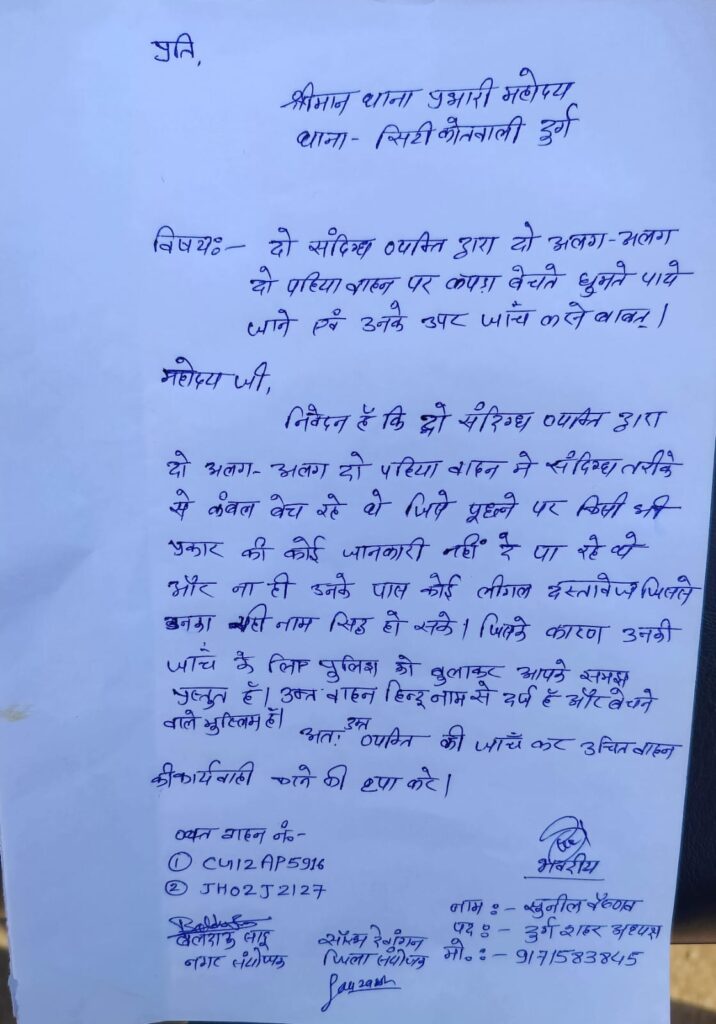 प्रति,
श्रीमान थाना प्रभारी महोदय
थाना - सिटी कोतवाली दुर्ग
विषयः- दो संदिग्ध व्यक्ति द्वारा दो अलग-अलग
दो पहिया वाहन पर कपड़ा बेचते घुमते पाये
जाने एवं उनके उपर जाँच करने बाबत्।
महोदय जी,
निवेदन है कि दो संदिग्ध व्यक्ति द्वारा
दो अलग-अलग दो पहिया वाहन मे संदिग्ध तरीके
से कंबल बेच रहे थे जिसे पूछने पर किसी भी
प्रकार की कोई जानकारी नहीं दे पा रहे थे
और ना ही उनके पास कोई लीगल दस्तावेज जिससे
उनका सही नाम सिद्ध हो सके। जिसके कारण उनकी
जाँच के लिए पुलिश को बुलाकर आपके समक्ष
प्रस्तुत है। उक्त वाहन हिन्दू नाम से दर्ज है और बेचने
वाले मुस्लिम है।
अतः उक्त व्यक्ति की जाँच कर उचित वाहन
की कार्यवाही करने की कृपा करे।
वाहन नं:-
① CG12AP5916
② JH02J2127
भवदीय
नाम :- सुनील वैष्णव
पद :- दुर्ग शहर अध्यक्ष
मो. :- 9171583845
बलदाऊ साहू
नगर संयोजक
सौरभ देवांगन
जिला संयोजक
Saurabh